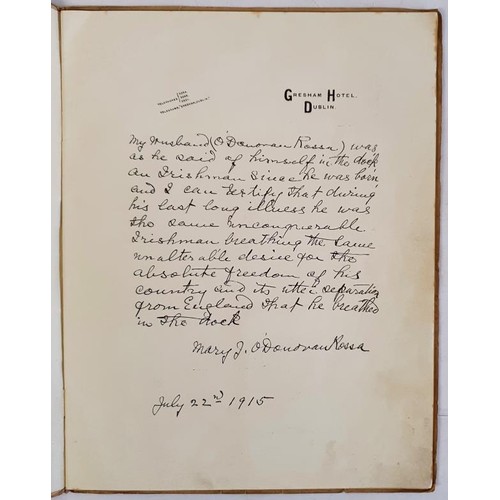 GRESHAM HOTEL,
DUBLIN.
My Husband (O'Donovan Rossa) was
as he said of himself in the dock
an Irishman since he was born
and I can testify that during
his last long illness he was
the same unconquerable
Irishman breathing the same
unalterable desire for the
absolute freedom of his
country and its utter separation
from England that he breathed
in the dock
Mary J. O'Donovan Rossa
July 22nd 1915